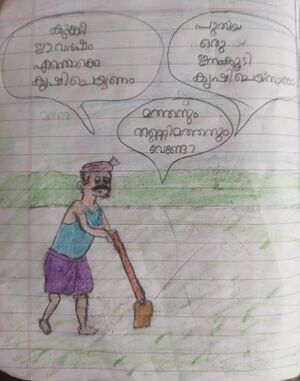 കുക്കി
ഈ വർഷം
എന്തൊക്കെ
കൃഷി ചെയ്യണം
പുതിയ
ഒരു
ഇനംകൂടി
കൃഷി ചെയ്താലോ
മത്തനും
തണ്ണിമത്തനും
വേണ്ടേ?